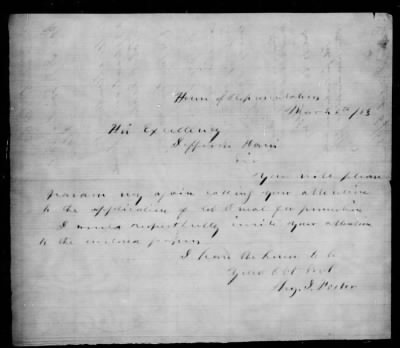 House of Representatives
March 6th /63
His Excellency
Jefferson Davis
Sir
You will please
pardon my again calling your attention
to the application of Col for promotion
I would respectfully invite your attention
to the enclosed papers
I have the honor to be
Your Obt Svt